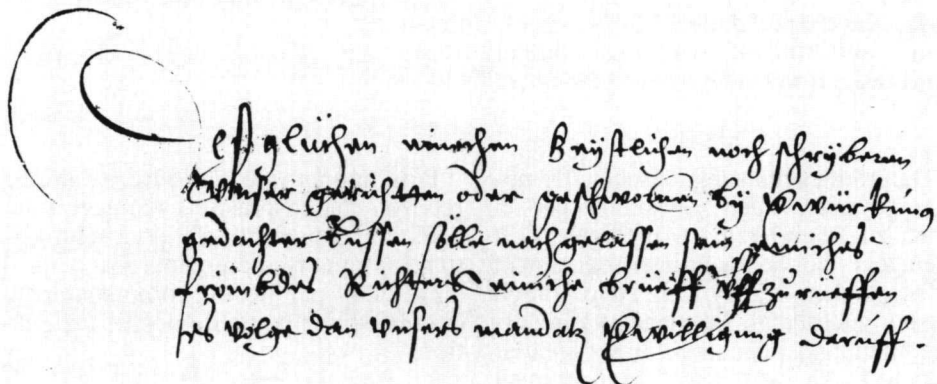 Deßglichen einichen Geystlichen noch schryberen
Unser grichten oder geschwornen by Verwürkung
gedachter Bussen sölle nachgelassen sein einiches
frömbdes Richters einiche brieff uff zurueffen
es volge dan unsers mandatz Verwilligung daruff.